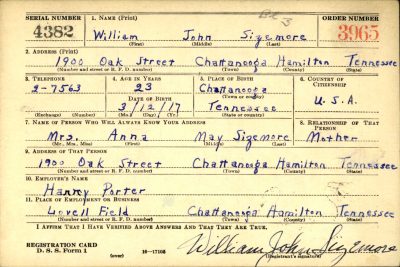 SERIAL NUMBER 1. NAME (Print) ORDER NUMBER
4382 William John Sizemore 3965
(First) (Middle) (Last)
2. ADDRESS (Print)
1900 Oak Street Chattanooga Hamilton Tennessee
(Number and street or R. F. D. number) (Town) (County) (State)
3. TELEPHONE 4. AGE IN YEARS 5. PLACE OF BIRTH 6. COUNTRY OF CITIZENSHIP
2-7563 23 Chattanooga
DATE OF BIRTH (Town or county)
3/12/17 Tennessee U.S.A.
(Exchange) (Number) (Mo.) (Day) (Yr.) (State or country)
7. NAME OF PERSON WHO WILL ALWAYS KNOW YOUR ADDRESS 8. RELATIONSHIP OF THAT PERSON
Mrs. Anna May Sizemore Mother
(Mr., Mrs., Miss) (First) (Middle) (Last)
9. ADDRESS OF THAT PERSON
1900 Oak Street Chattanooga Hamilton Tennessee
(Number and street or R. F. D. number) (Town) (County) (State)
10. EMPLOYER'S NAME
Harry Porter
11. PLACE OF EMPLOYMENT OR BUSINESS
Lovell Field Chattanooga Hamilton Tennessee
(Number and street or R. F. D. number) (Town) (County) (State)
I AFFIRM THAT I HAVE VERIFIED ABOVE ANSWERS AND THAT THEY ARE TRUE.
REGISTRATION CARD
D. S. S. Form 1 (over) 16—17105 William John Sizemore
(Registrant's signature)